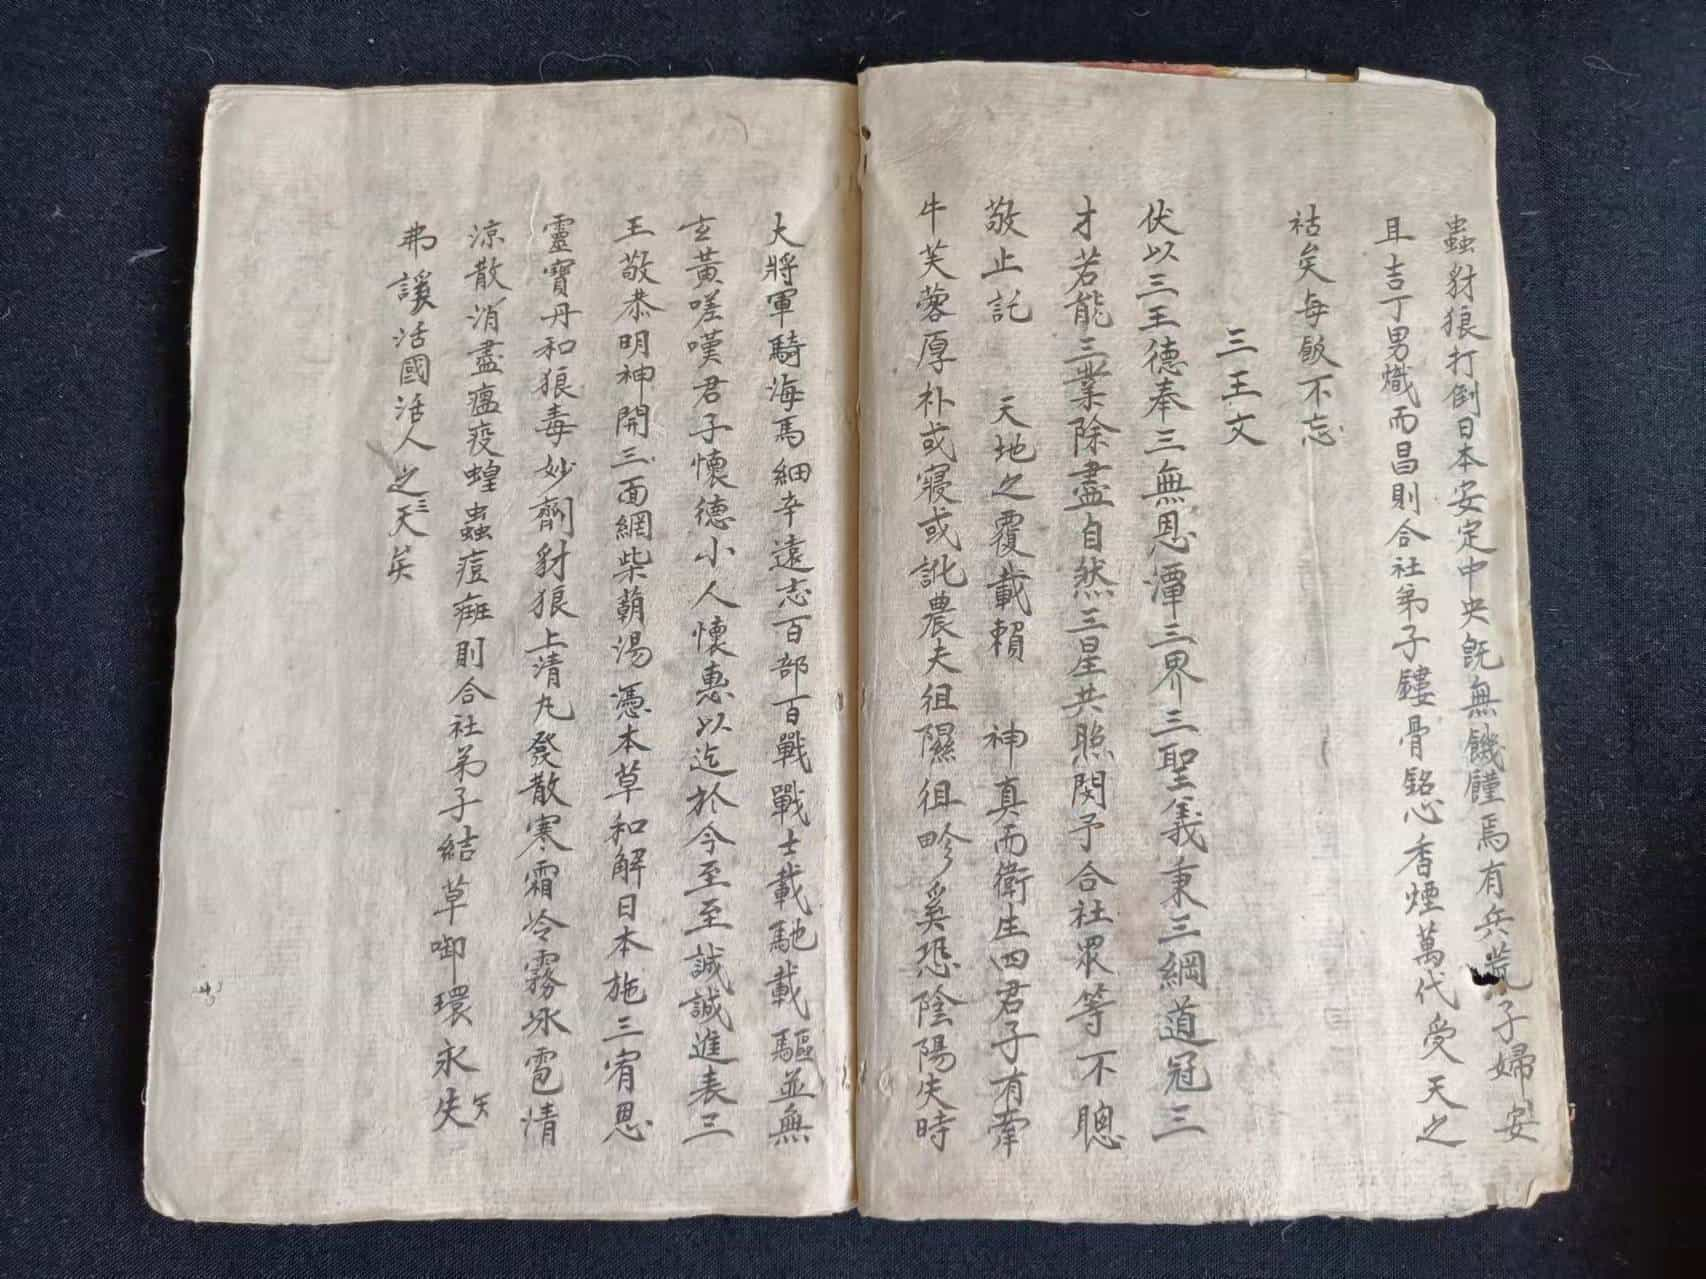 蟲豺狼打倒日本安定中央旣無饑饉焉有兵荒子婦安
且吉丁男熾而昌則合社弟子鏤骨銘心香煙萬代受 天之
祜矣每飯不忘
三王文
伏以三王德奉三無恩潭三界三聖義秉三綱道冠三
才若能三業除盡自然三星共照関予合社眾等不聰
敬止託 天地之覆載賴 神真而衛生四君子有牽
牛芙蓉厚朴或寢或訛農夫徂隰徂畛奚恐陰陽失時
大將軍騎海馬細辛遠志百部百戰戰士載馳載驅並無
玄黃嗟嘆君子懷德小人懷惠以迄於今至至誠誠進表三
王敬恭明神開三面網柴葫湯憑本草和解日本施三宥恩
靈寶丹和狼毒妙劑豺狼上清丸發散寒霜冷霧冰雹清
涼散消盡瘟疫蝗蟲痘癍則合社弟子結草啣環永失矢
弗諼活國活人之三天矣